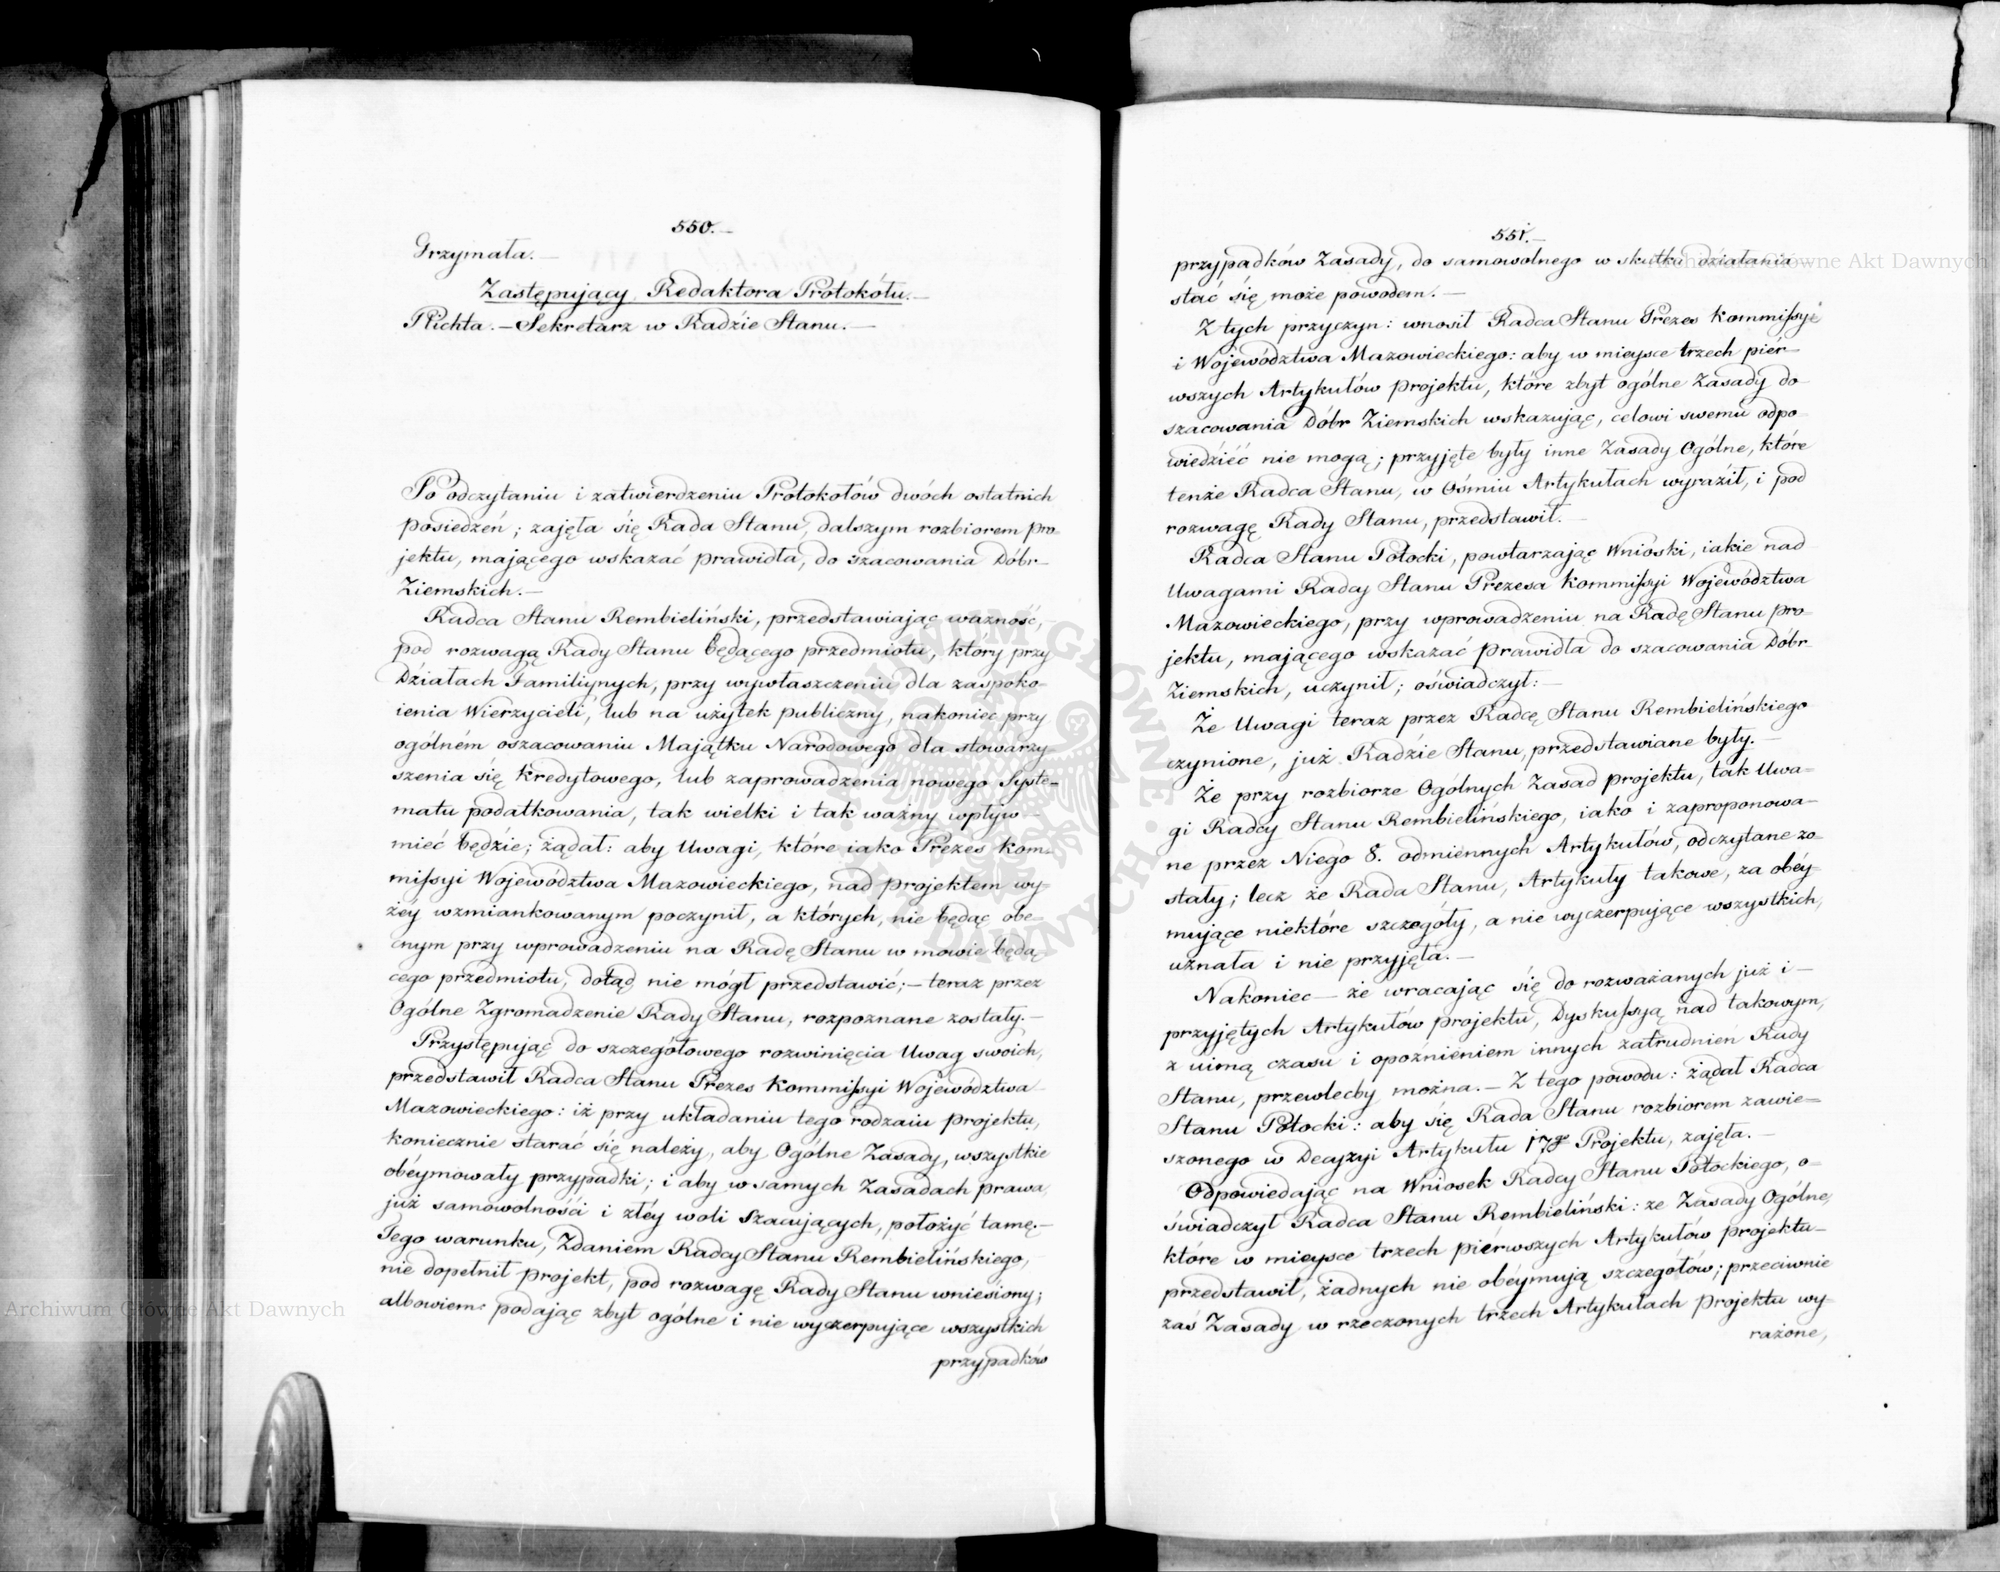 550.—
Grzymała.—
Zastępujący Redaktora Protokółu.—
Plichta.—Sekretarz w Radzie Stanu.—
Po odczytaniu i zatwierdzeniu Protokołów dwóch ostatnich
posiedzeń; zajęła się Rada Stanu, dalszym rozbiorem pro-
jektu, mającego wskazać prawidła, do szacowania Dóbr—
Ziemskich.—
Radca Stanu Rembieliński, przedstawiając ważność,—
pod rozwagą Rady Stanu będącego przedmiotu, który przy
Działach Familiynych, przy wywłaszczeniu dla zaspoko-
ienia Wierzycieli, lub na użytek publiczny, nakoniec przy
ogólném oszacowaniu Majątku Narodowego dla stowarzy-
szenia się kredytowego, lub zaprowadzenia nowego Syste-
matu podatkowania, tak wielki i tak ważny wpływ—
mieć będzie; żądał: aby Uwagi, które iako Prezes Kom-
missyi Województwa Mazowieckiego, nad projektem wy-
żéy wzmiankowanym poczynił, a których, nie będąc obe-
cnym przy wprowadzeniu na Radę Stanu w mowie będą-
cego przedmiotu, dotąd nie mógł przedstawić;— teraz przez
Ogólne Zgromadzenie Rady Stanu, rozpoznane zostały.—
Przystępując do szczegółowego rozwinięcia Uwag swoich,
przedstawił Radca Stanu Prezes Kommissyi Województwa
Mazowieckiego: iż przy układaniu tego rodzaiu projektu,
koniecznie starać się należy, aby Ogólne Zasady, wszystkie
obéymowały przypadki; i aby w samych Zasadach prawa,
już samowolności i złéy woli Szacujących, położyć tamę.—
Tego warunku, Zdaniem Radcy Stanu Rembielińskiego,
nie dopełnił projekt, pod rozwagę Rady Stanu wniesiony;
albowiem: podając zbyt ogólne i nie wyczerpujące wszystkich
przypadków
551.—
przypadków Zasady, do samowolnego w skutku działania
stać się może powodem.—
Z tych przyczyn: wnosił Radca Stanu Prezes Kommissyi
i Województwa Mazowieckiego: aby w mieysce trzech piér-
wszych Artykułów projektu, które zbyt ogólne Zasady do—
szacowania Dóbr Ziemskich wskazując, celowi swemu odpo-
wiedziéć nie mogą; przyjęte były inne Zasady Ogólne, które
tenże Radca Stanu, w Ośmiu Artykułach wyraźił, i pod
rozwagę Rady Stanu, przedstawił.—
Radca Stanu Potocki, powtarzając Wnioski, iakie nad
Uwagami Radcy Stanu Prezesa Kommissyi Województwa
Mazowieckiego, przy wprowadzeniu na Radę Stanu pro-
jektu, mającego wskazać prawidła do szacowania Dóbr
Ziemskich, uczynił; oświadczył:—
Że Uwagi teraz przez Radcę Stanu Rembielińskiego
czynione, już Radzie Stanu, przedstawiane były.—
Że przy rozbiorze Ogólnych Zasad projektu, tak Uwa-
gi Radcy Stanu Rembielińskiego, iako i zaproponowa-
ne przez Niego 8. odmiennych Artykułów, odczytane zo-
stały; lecz że Rada Stanu, Artykuły takowe, za obéy-
mujące niektóre szczegóły, a nie wyczerpujące wszystkich,
uznała i nie przyjęła.—
Nakoniec— że wracając się do rozważanych już i—
przyjętych Artykułów projektu, Dyskussyą nad takowym,
z uimą czasu i opoźnieniem innych zatrudnień Rady
Stanu, przewlecby można.— Z tego powodu: żądał Radca
Stanu Potocki: aby się Rada Stanu rozbiorem zawie-
szonego w Decyzyi Artykułu 17go Projektu, zajęła.—
Odpowiedając na Wniosek Radcy Stanu Potockiego, o-
świadczył Radca Stanu Rembieliński: że Zasady Ogólne,
które w mieysce trzech pierwszych Artykułów projektu—
przedstawił, żadnych nie obéymują szczegółów; przeciwnie
zaś Zasady w rzeczonych trzech Artykułach projektu wy-
rażone,
Archiwum Główne Akt Dawnych
Archiwum Główne Akt Dawnych
ARCHIWUM GŁÓWNE AKT DAWNYCH